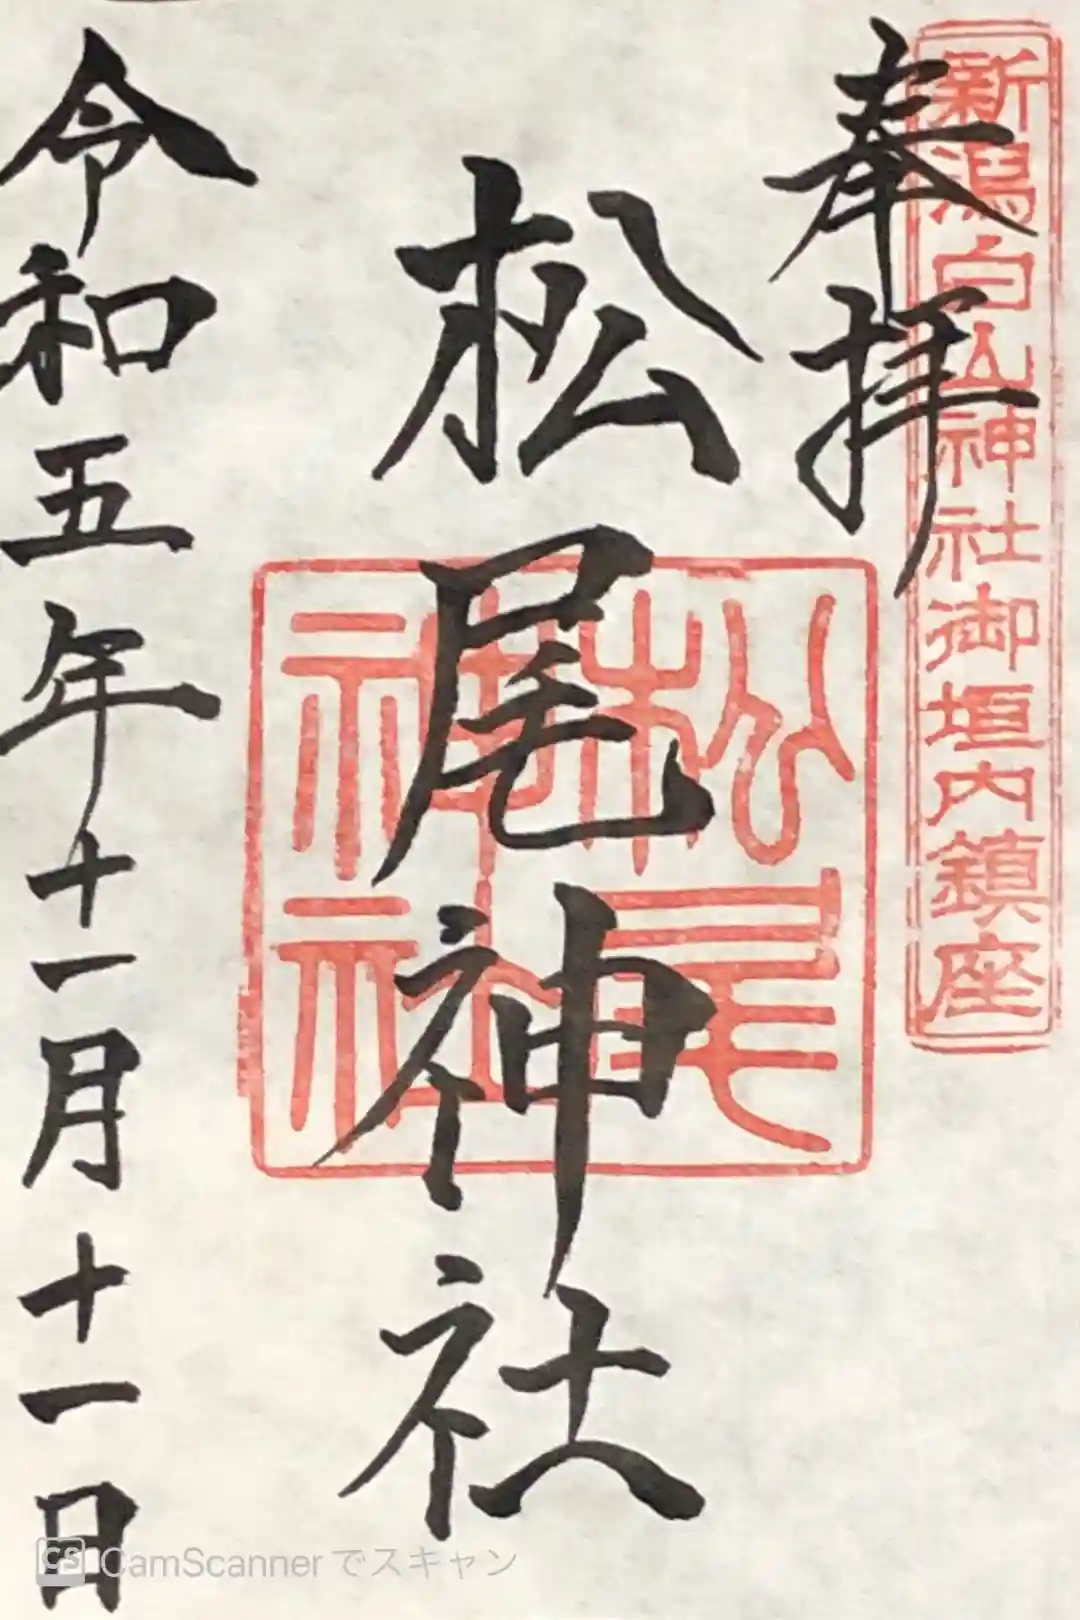 新潟白山神社御垣内鎮座
奉拝
松尾神社
松尾神社
令和五年十一月十一日
CS CamScannerでスキャン